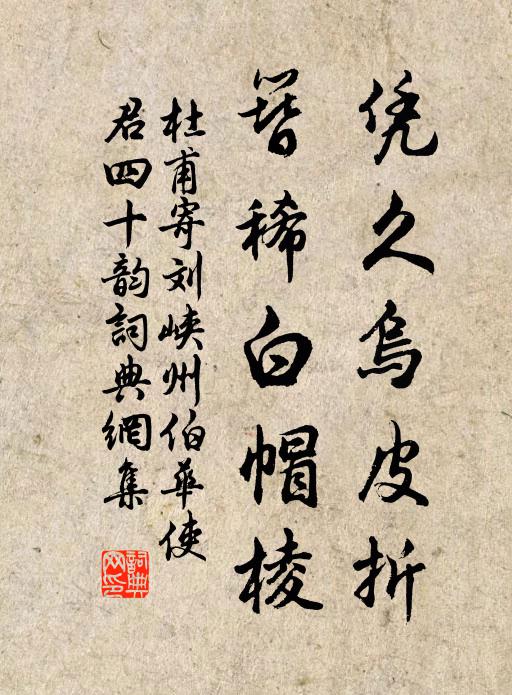 凭久乌皮折
簪稀白帽棱
杜甫寄刘峡州伯华使
君四十韵詞典網集
詞典
网印